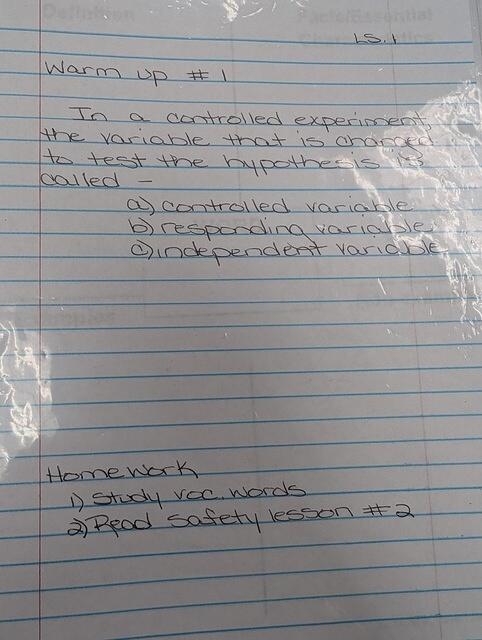 Definition
Facts/Essential
Characteristics
LS. 1
Warm up # 1
In a controlled experiment,
the variable that is changed
to test the hypothesis is
called -
a) controlled variable
b) responding variable
c) independent variable
Homework
1) Study voc. words
2) Read safety lesson #2